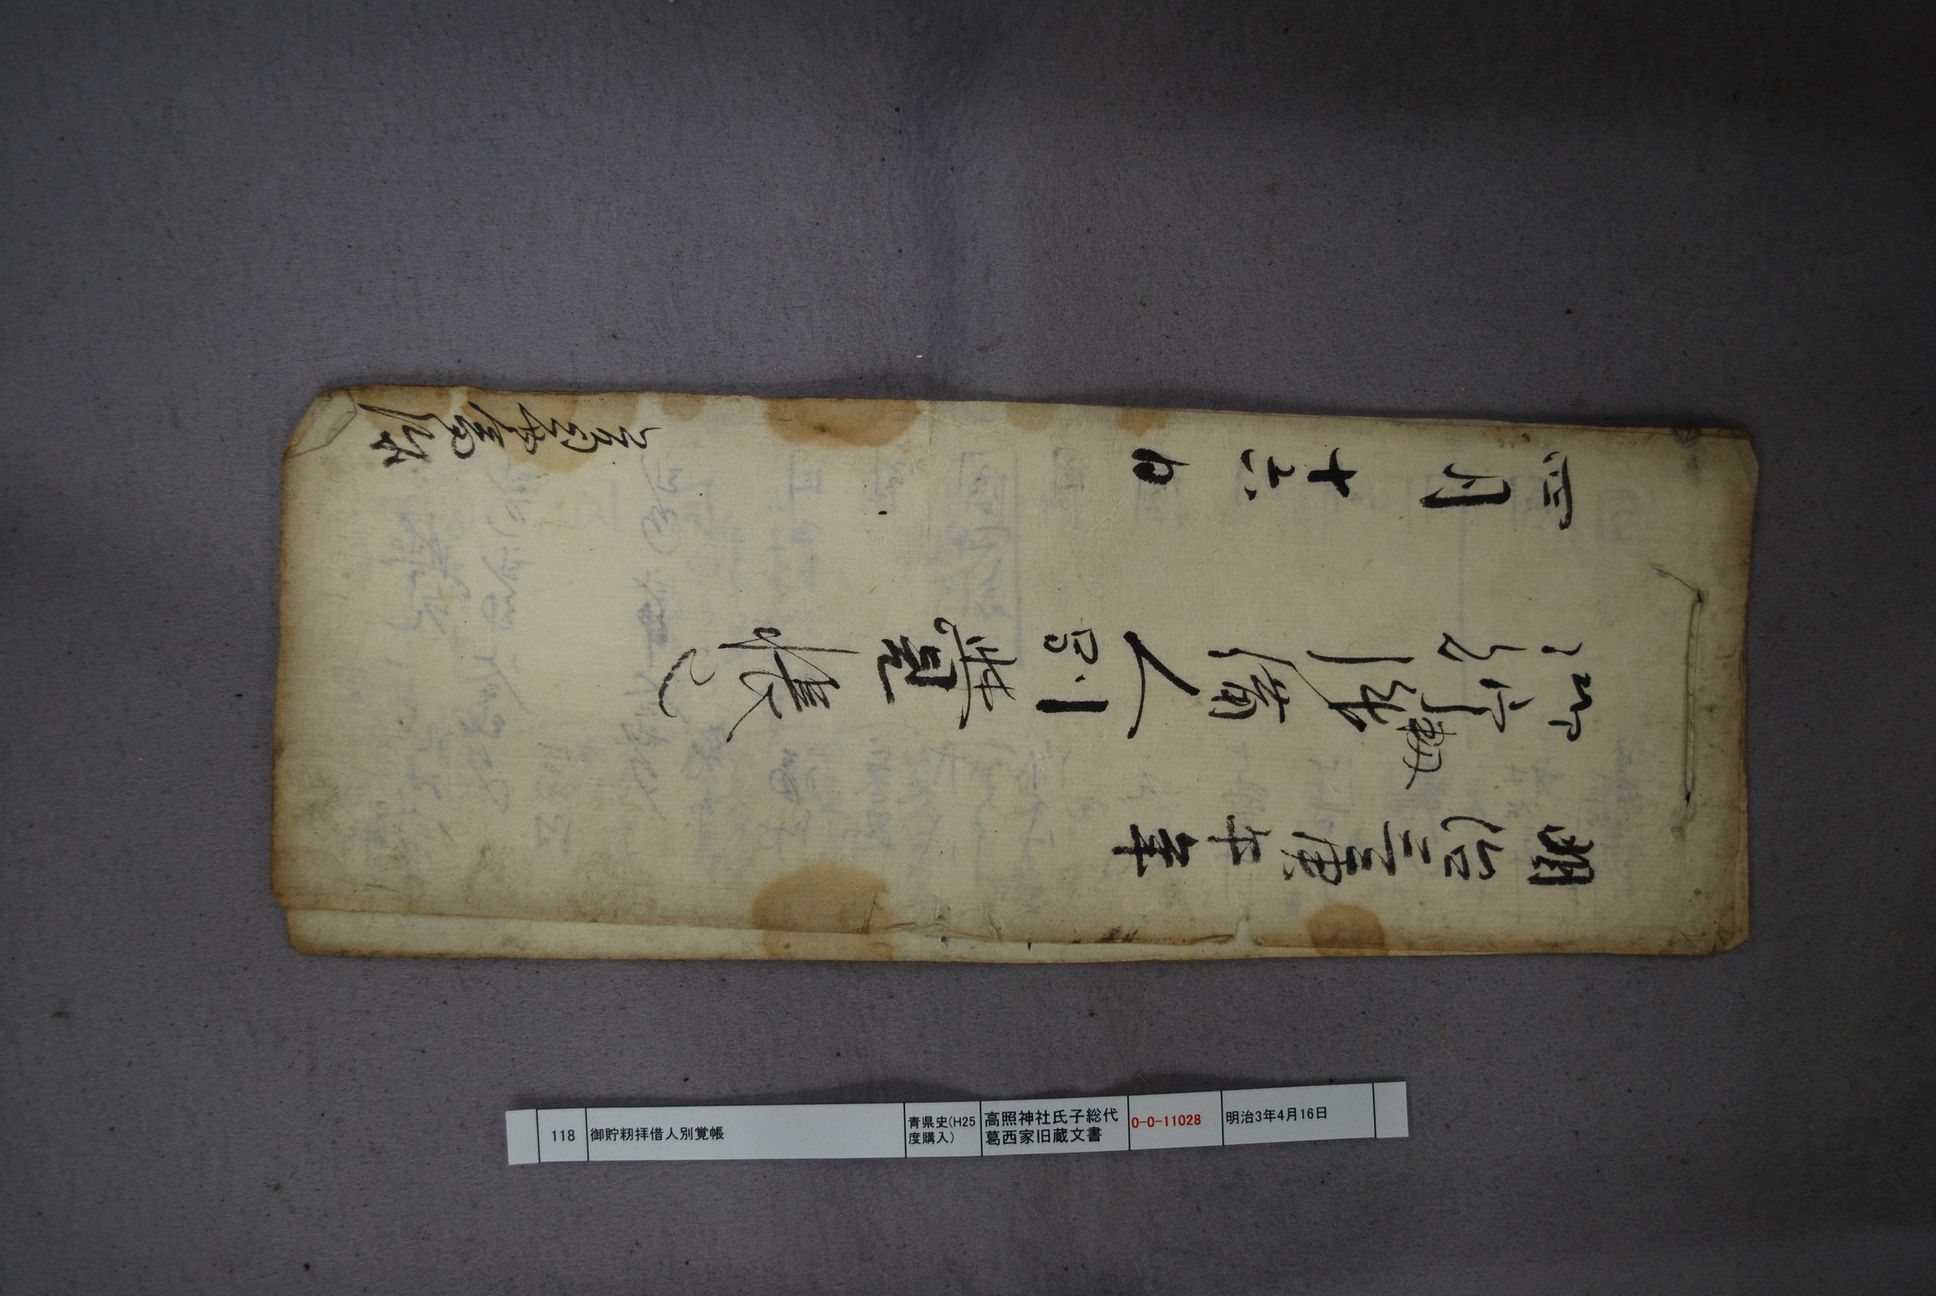 明治三庚午年
御貯籾拝借人別覚帳
四月十六日
118
御貯籾拝借人別覚帳
青県史(H25
度購入)
高照神社氏子総代
葛西家旧蔵文書
0-0-11028
明治3年4月16日